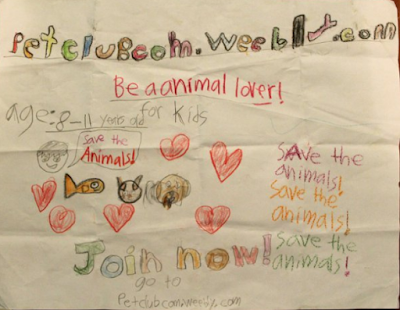 Petclubcom.weebly.com
Be a animal lover!
age: 8-11 years old for kids
Save the
Animals!
Save the
animals!
Save the
animals!
Save the
animals!
Join now!
go to
Petclubcom.weebly.com